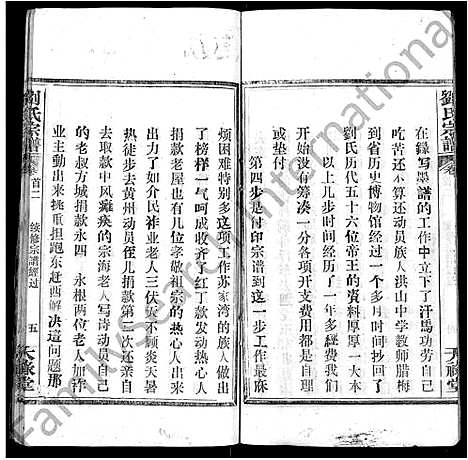 劉氏宗譜
卷
天祿堂
在錄写墨譜的工作中立下了汗馬功劳自己
吃苦还不算还动員族人洪山中学教师腊梅
到省历史博物館经过一个多月时间抄回了
劉氏历代五十六位帝王的資料厚厚一大本
以上几步时间经历了一年多經費我们
始就沒有筹凑一分各項开支費用都
或垫付
第四步是付印宗谱到这一步工作最麻
烦困难特别多这項工作苏家湾的族人做出
了榜样一气呵成收齐了红丁款发动热心人
捐款老屋也有几位孝敬祖宗的热心人出
力出点了如介民祚业老人三伏天不顾炎天暑
热徒步去黄州动員侄儿捐款第一次还亲自
去取款中风癱痪的宗海老人写诗动員自己
的老叔方城捐款永四 永根两位老人加祚
业主動出来挑重担跑东赶西解决這问題那
劉氏宗譜
卷首二
续修宗譜經过
五
天祿堂
FamilySearch International